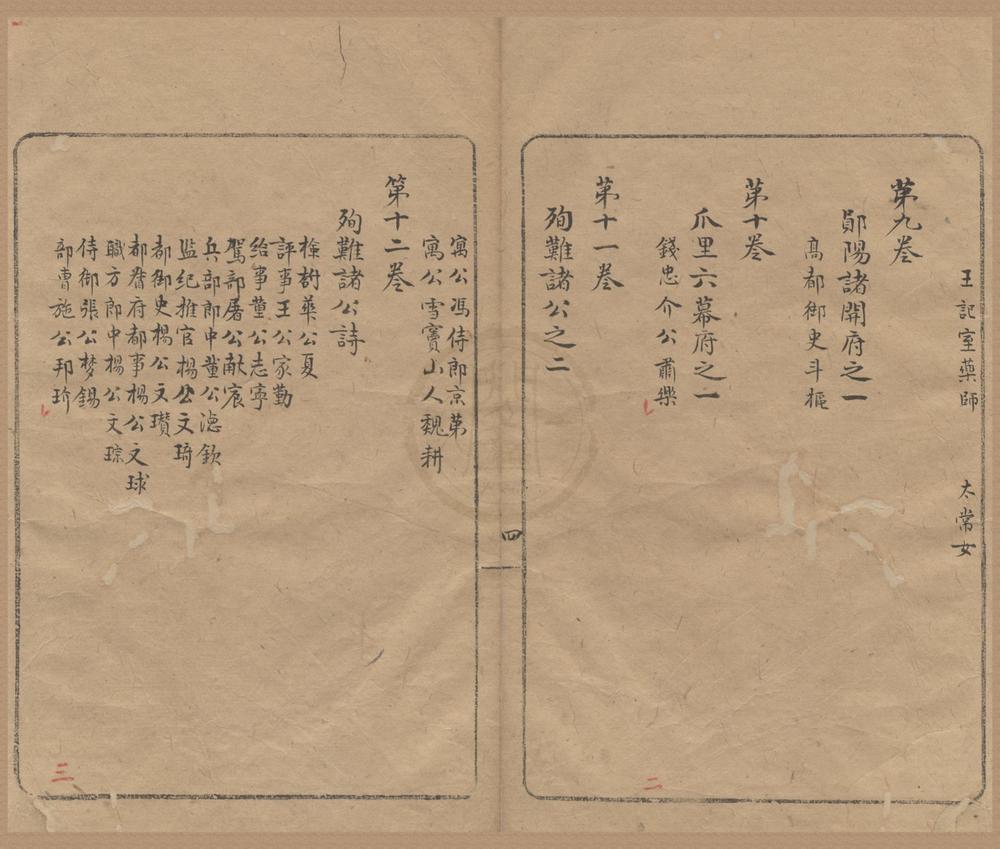 王記室藥師　太常女
第九卷
鄖陽諸開府之一
高都御史斗樞
第十卷
爪里六幕府之一
錢忠介公肅樂
二
第十一卷
殉難諸公之二
四
寓公馮侍郎京第
寓公雪竇山人魏耕
第十二卷
殉難諸公詩
檢討華公夏
評事王公家勤
給事董公志寧
駕部屠公献宸
兵部郎中董公德欽
监纪推官楊公文琦
都御史楊公文瓚
都督府都事楊公文球
職方郎中楊公文琮
侍御張公梦錫
部曹施公邦玠
三